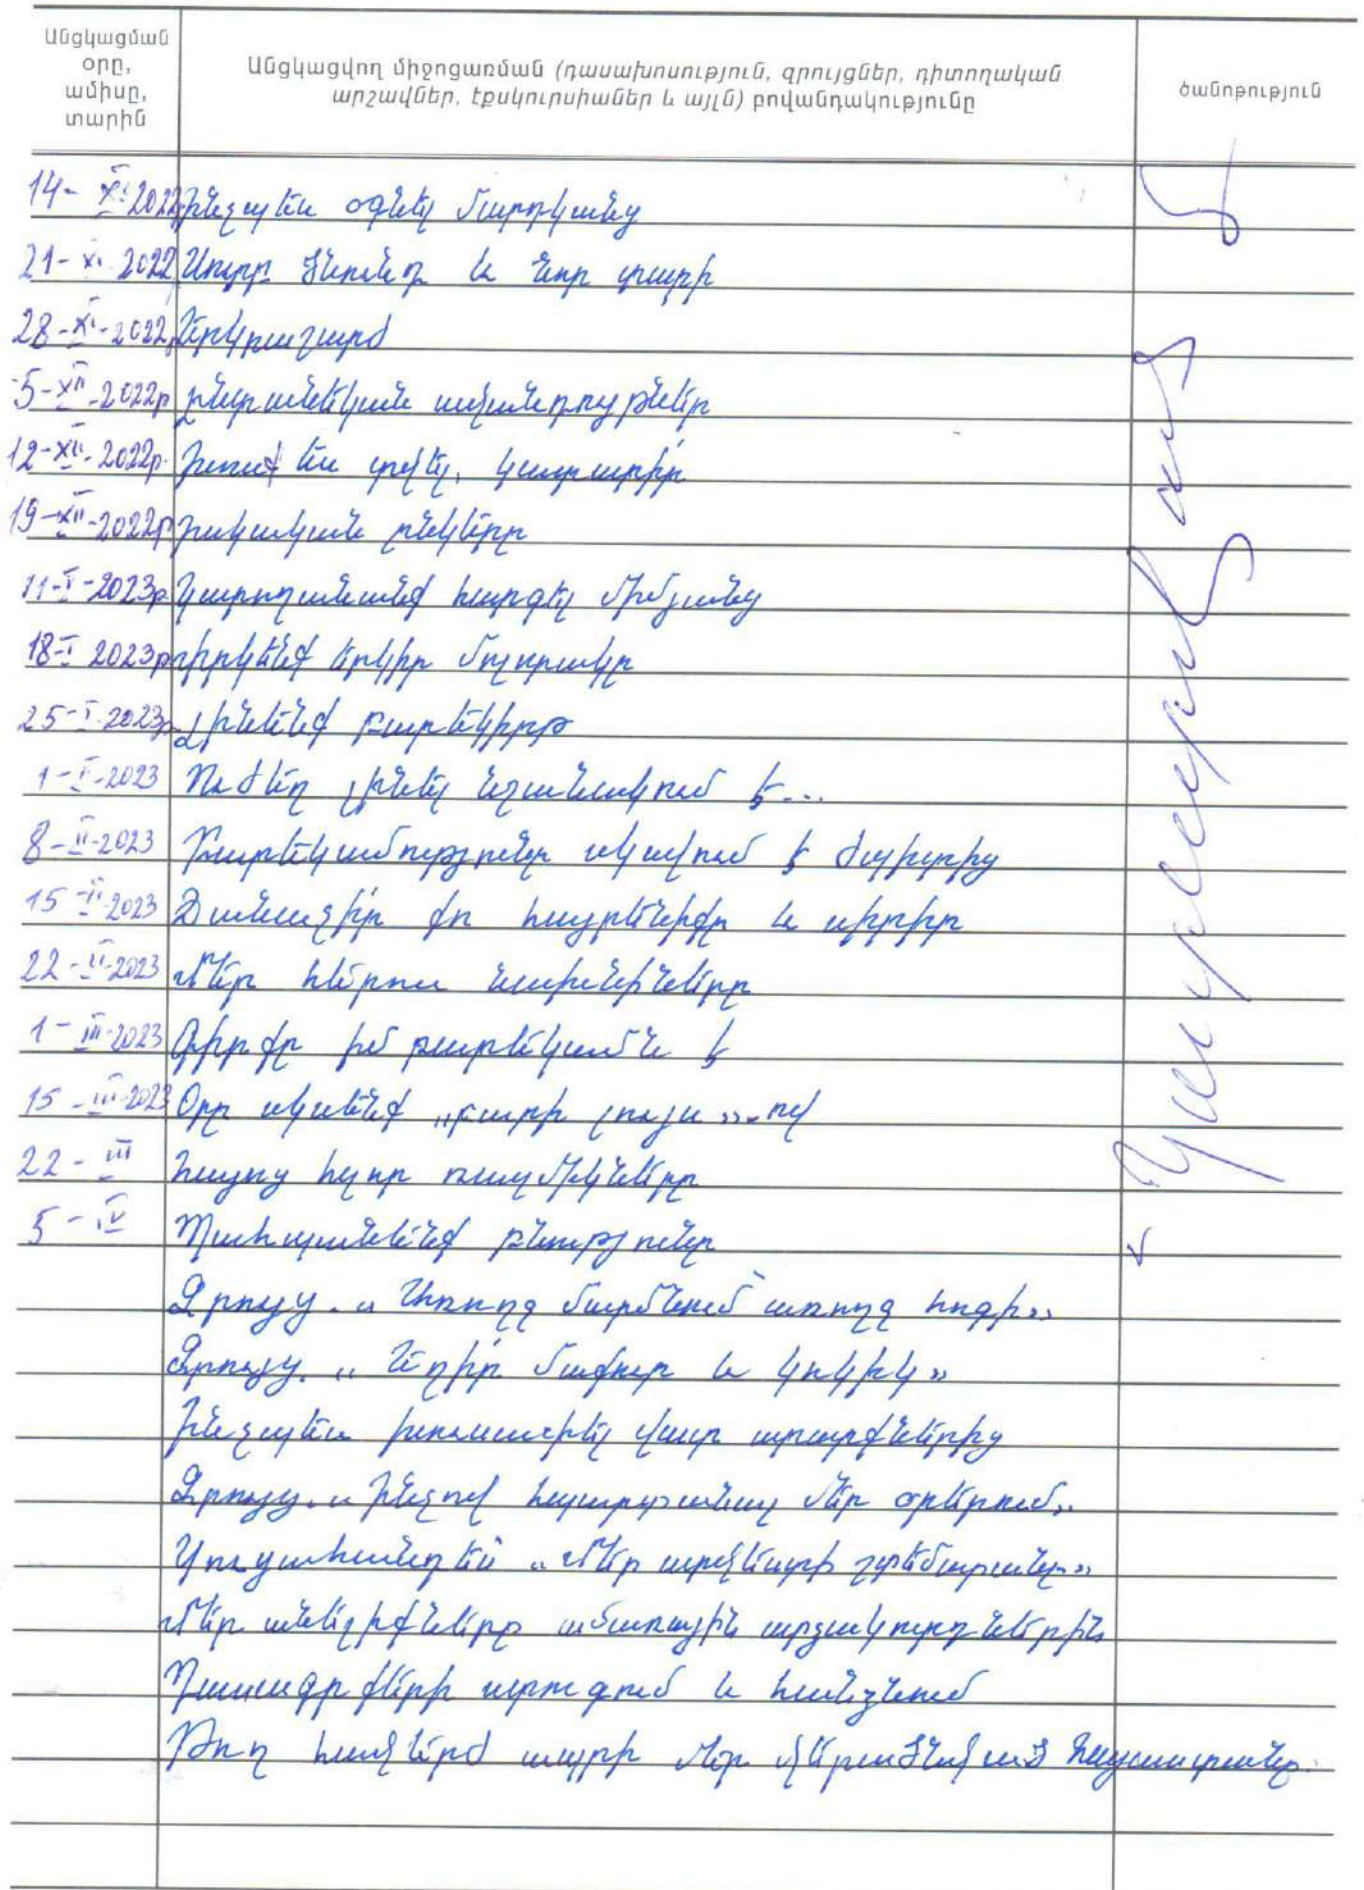 Անցկացման
օրը,
ամիսը,
տարին
Անցկացվող միջոցառման (դասախոսություն, զրույցներ, դիտողական
արշավներ, էքսկուրսիաներ և այլն) բովանդակությունը
ծանոթություն
14-XI-2022 Ինչպես օգնել մարդկանց
21-XI-2022 Սուրբ Ծնունդ և Նոր տարի
28-XI-2022 Երկրաշարժ
5-XII-2022թ Ընտանեկան ավանդույթներ
12-XII-2022թ. Խոսք ես տվել, կատարիր
19-XII-2022թ Իսկական ընկերը
11-I-2023թ Կարողանանք հարգել միմյանց
18-I 2023թ Փրկենք երկիր մոլորակը
25-I-2023թ Լինենք բարեկիրթ
1-II-2023 Ուժեղ լինել նշանակում է...
8-II-2023 Բարեկամությունը սկսվում է ժպիտից
15-II-2023 Ճանաչիր քո հայրենիքը և սիրիր
22-II-2023 Մեր հերոս նախնիները
1-III-2023 Գիրքը իմ բարեկամն է
15-III-2023 Օրը սկսենք „բարի լույս»-ով
22-III Հայոց հզոր ռազմիկները
5-IV Պահպանենք բնությունը
Զրույց. « Առողջ մարմնում՝ առողջ հոգի»
Զրույց. „ Եղիր մաքուր և կոկիկ»
Ինչպես խուսափել վատ արարքներից
Զրույց. « Ինչով հպարտանալ մեր օրերում„
Կուղահանդես « Մեր արվեստի շտեմարանը»
Մեր անելիքները ամառային արձակուրդներին
Դասագրքերի ստուգում և հանձնում
Թող հավերժ ապրի մեր վերածնված Հայաստանը:
Կատարված է